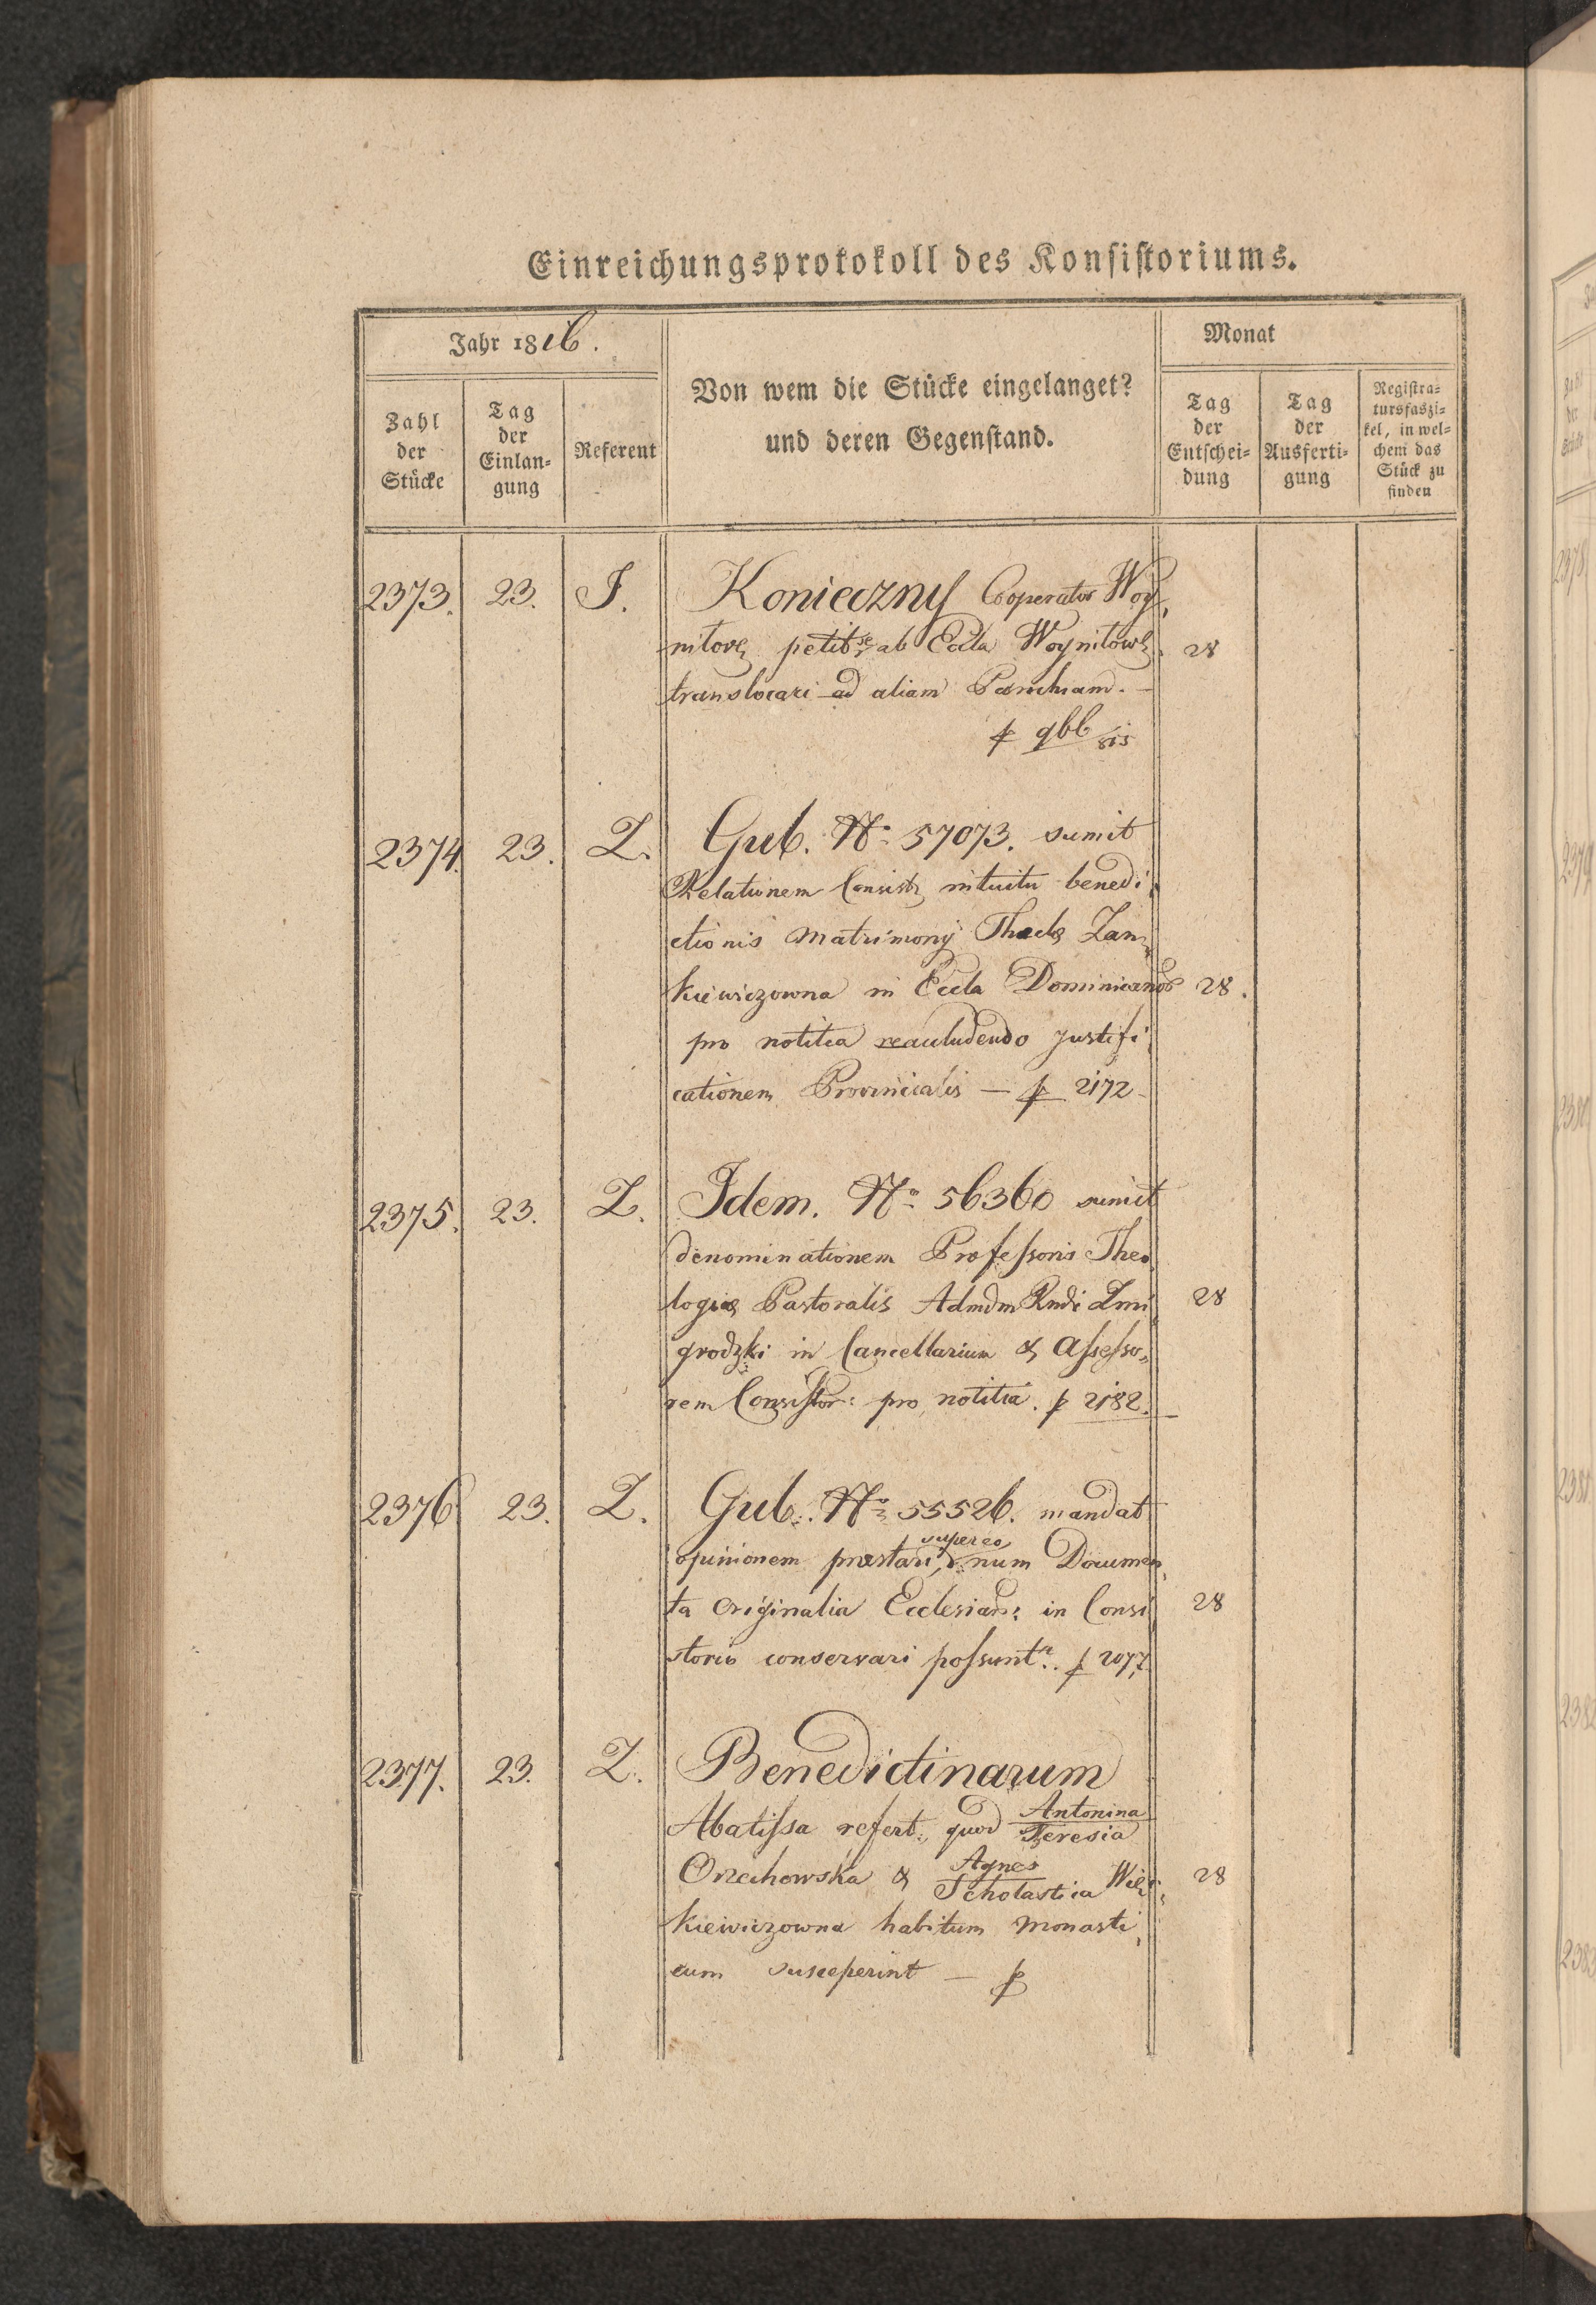 Einreichungsprotokoll des Konsistoriums.
Jahr 1816.
Monat
Zahl der Stücke
Tag der Einlan-gung
Referent
Von wem die Stücke eingelanget?
und deren Gegenstand.
Tag der Entschei-dung
Tag der Ausferti-gung
Registra-tursfaszi-kel, in wel-chem das Stück zu finden
2373. 23. J. Konieczny Cooperator Woy,
nilove petit se ab Eccla Woynilow 28
translocari ad aliam Parochiam. —
2374. 23. Z. Gub. No. 57073. sumit
Relationem Consist intuitu benedi,
ctionis Matrimonij Thecla Zan
kiewiczowna in Eccla Dominicanor 28.
pro notitia reaccludendo justifi,
cationem Provincialis — p 2172
2375. 23. Z. Idem. No. 56360 sumit
denominationem Professoris Theo
logiæ Pastoralis Admdm Rndi Zmi 28
grodzki in Cancellarium & Assesso,
rem Consistor: pro notitia. p 2182.
2376 23. Z. Gub. No. 55526. mandat
opinionem præstari, super eo, num Documen,
ta originalia Ecclesiar: in Consi 28
storio conservari possunt. p 2077
2377. 23. Z. Benedictinarum
Abatissa refert, quod Antonina Teresia
Orzechowska & Agnes Scholastica Wil 28
kiewiczowna habitum monasti,
cum susceperint — p